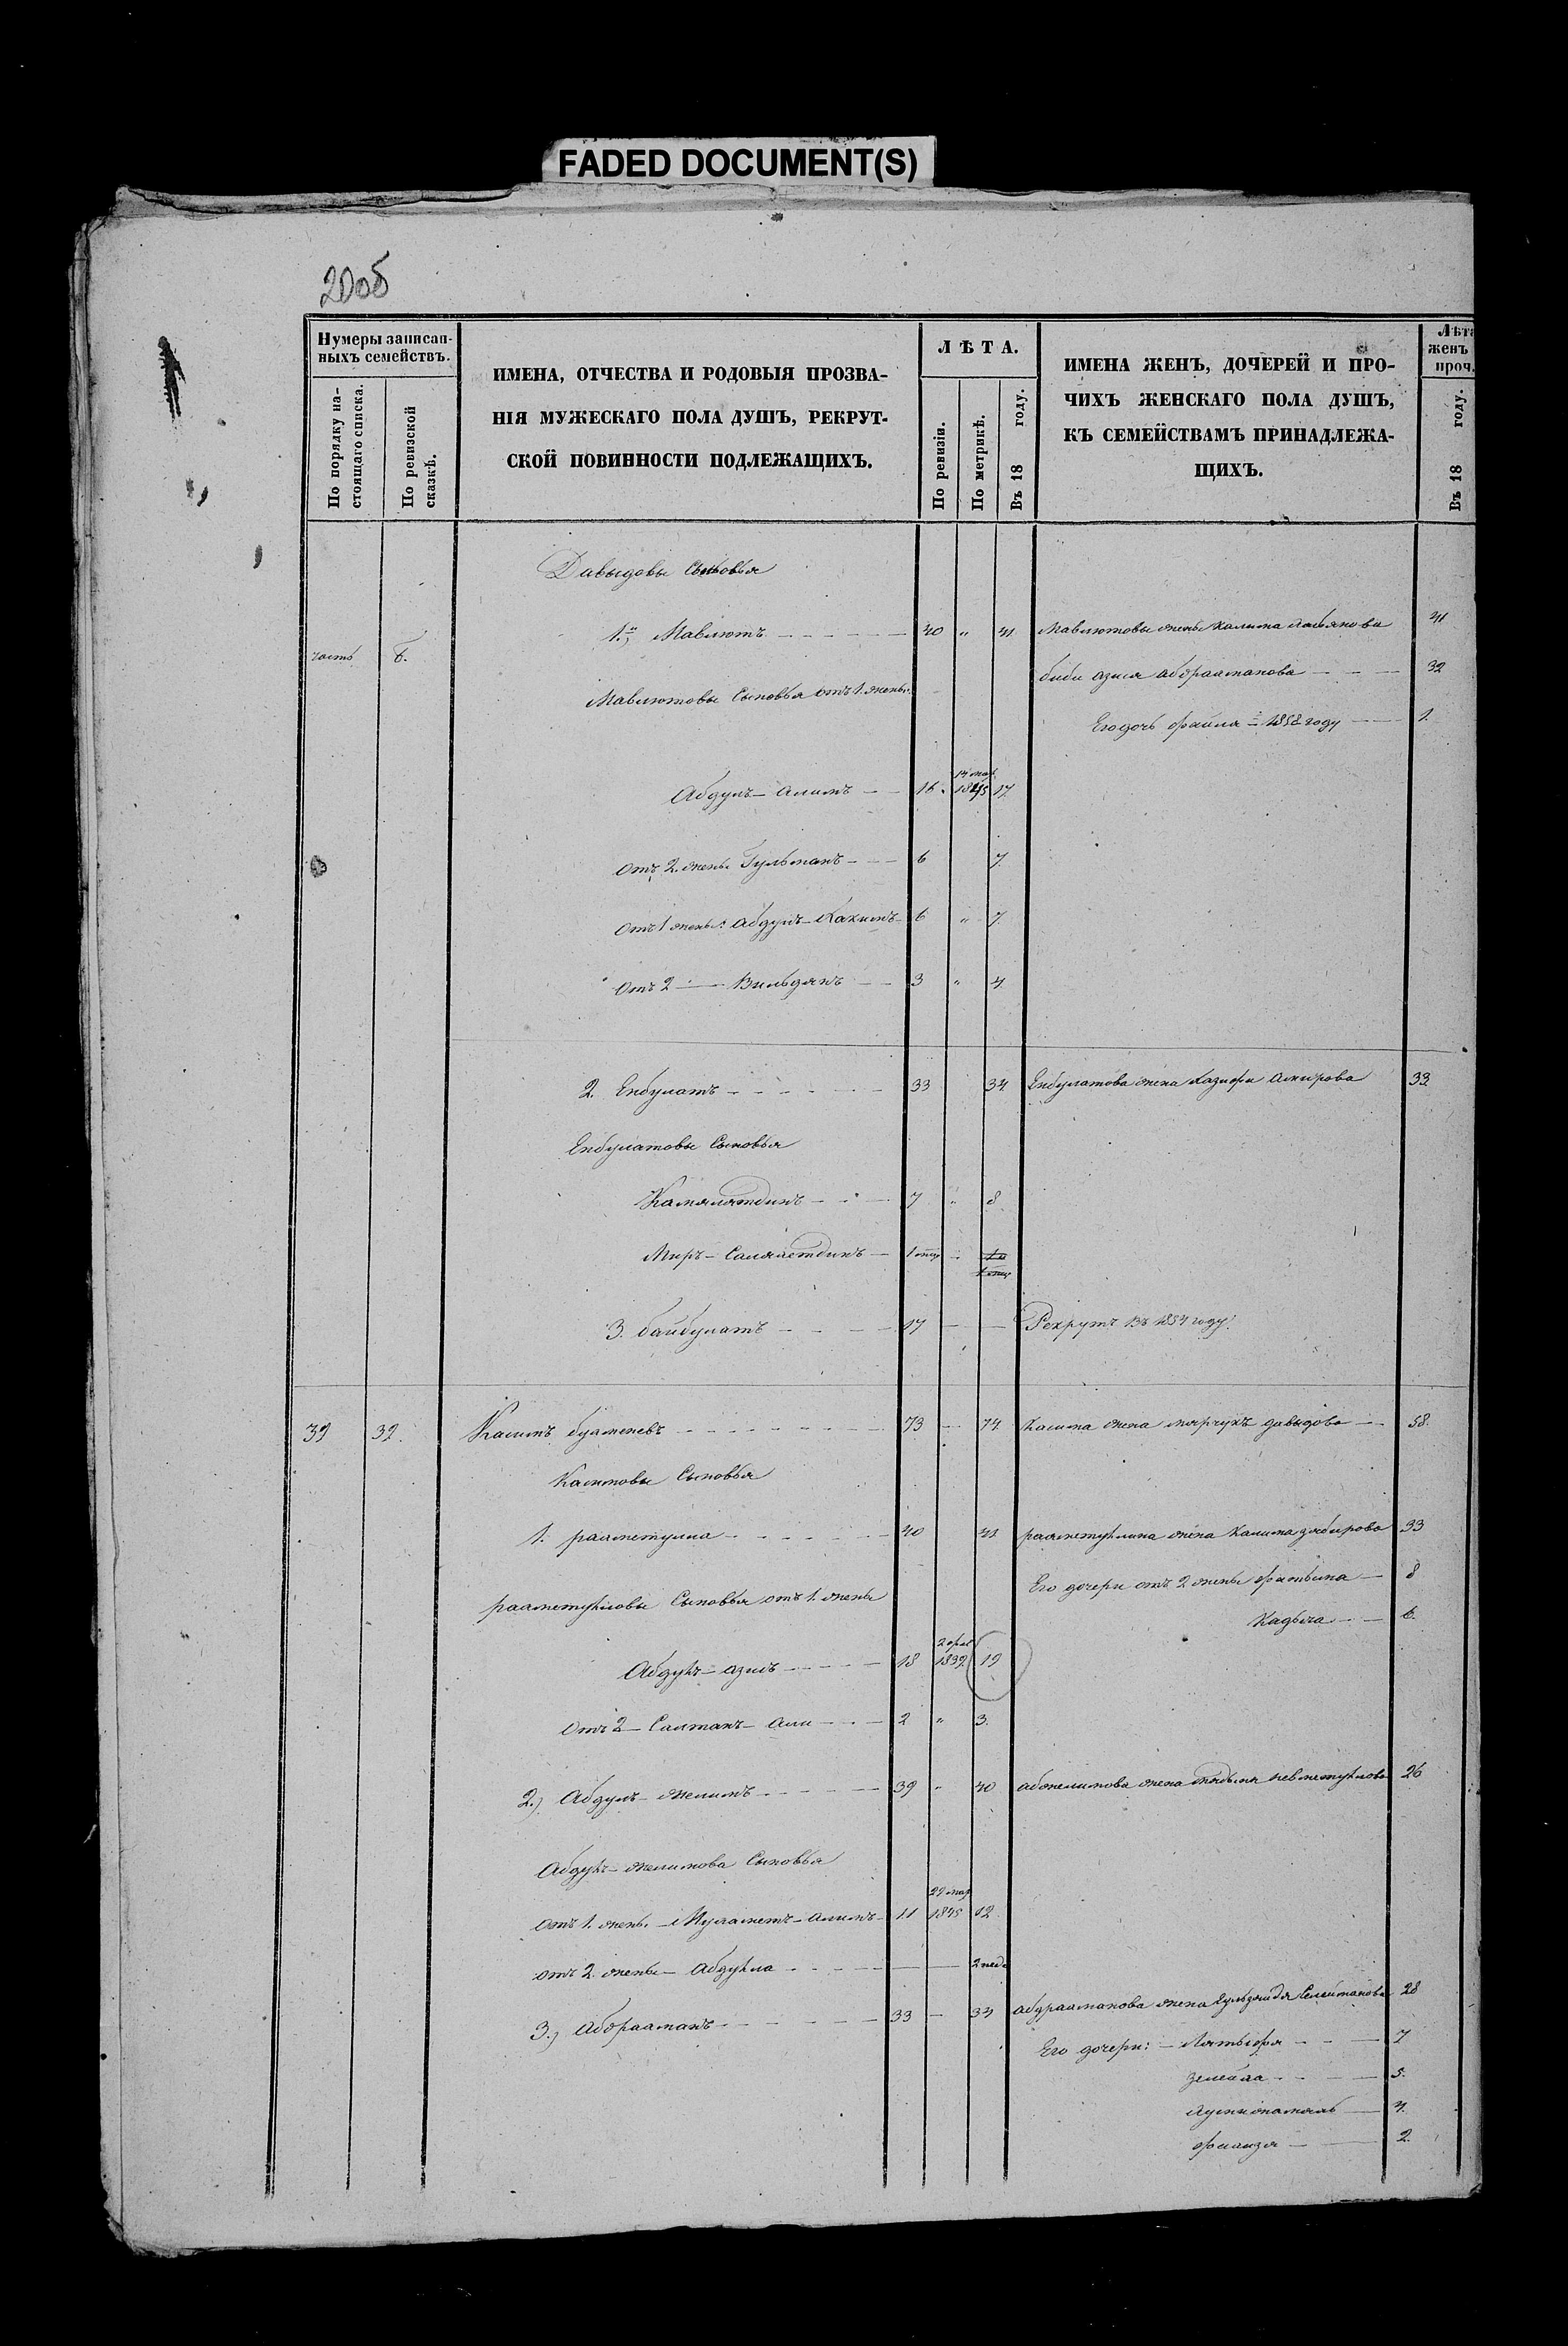 FADED DOCUMENT(S)
200б
Нумеры записан-
ныхъ семействъ.
По порядку на-
стоящаго списка.
По ревизской
сказкѣ.
ИМЕНА, ОТЧЕСТВА И РОДОВЫЯ ПРОЗВА-
НІЯ МУЖЕСКАГО ПОЛА ДУШЪ, РЕКРУТ-
СКОЙ ПОВИННОСТИ ПОДЛЕЖАЩИХЪ.
ЛѢТА.
По ревизіи.
По метрикѣ.
Въ 18 году.
ИМЕНА ЖЕНЪ, ДОЧЕРЕЙ И ПРО-
ЧИХЪ ЖЕНСКАГО ПОЛА ДУШЪ,
КЪ СЕМЕЙСТВАМЪ ПРИНАДЛЕЖА-
ЩИХЪ.
Лѣта
женъ
проч.
Въ 18 году.
Давыдовы Сыновья
1.й, Мавлютъ 40 " 41 Мавлютовы жены Калима 41
часть 8. биби азися абдрахманова 32
Мавлютовы Сыновья отъ 1. жены.
Его дочь 1858 году 1.
Абдулъ-Алимъ 16. 1845 17
отъ 2. жены Гульманъ 6 7.
отъ 1 жены: Абдулъ-Хакимъ 6 " 7.
отъ 2 — Вильданъ 3 " 4.
2. Енбулатъ 33 34 Енбулатова жена Амирова 33
Енбулатовы Сыновья
Камалятдинъ 7 " 8.
Миръ-Саляхетдинъ
3. байбулатъ 17 — — Рекрутъ въ 1854 году.
39 39. Калимъ 73 — 74 Калима жена давыдова 58.
Калимовы Сыновья
1. рахметулла 40 41 рахметуллина жена Калима забирова 33
Его дочери отъ 2 жены 8
рахметулловы Сыновья отъ 1. жены
Кадыча 6.
2 фев
Абдулъ-азисъ 18 1839 19
отъ 2 — Салтанъ-Али 2 " 3.
2.) Абдулъ-желимъ 39 " 40 абжелимова жена 26
Абдулъ-желимова Сыновья
29 мар
отъ 1. жены — Мухаметъ-алимъ 11 1845 12
отъ 2. жены — Абдулла — — 2 неде
3.) Абдрахманъ 33 — 34 абдрахманова жена Селейманова 28
Его дочери: — Лятыфа 7
5.
4.
2.